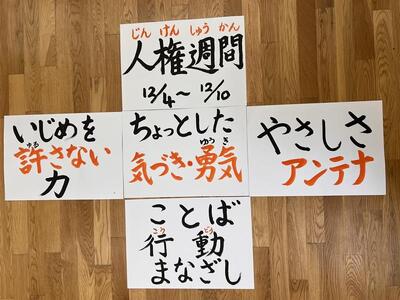 じん けん しゅう かん
人権週間
12/4〜12/10
いじめを
ゆる
許さない
力
ちょっとした
ゆうき
気づき・勇気
やさしさ
アンテナ
ことば
こう どう
行動
まなざし